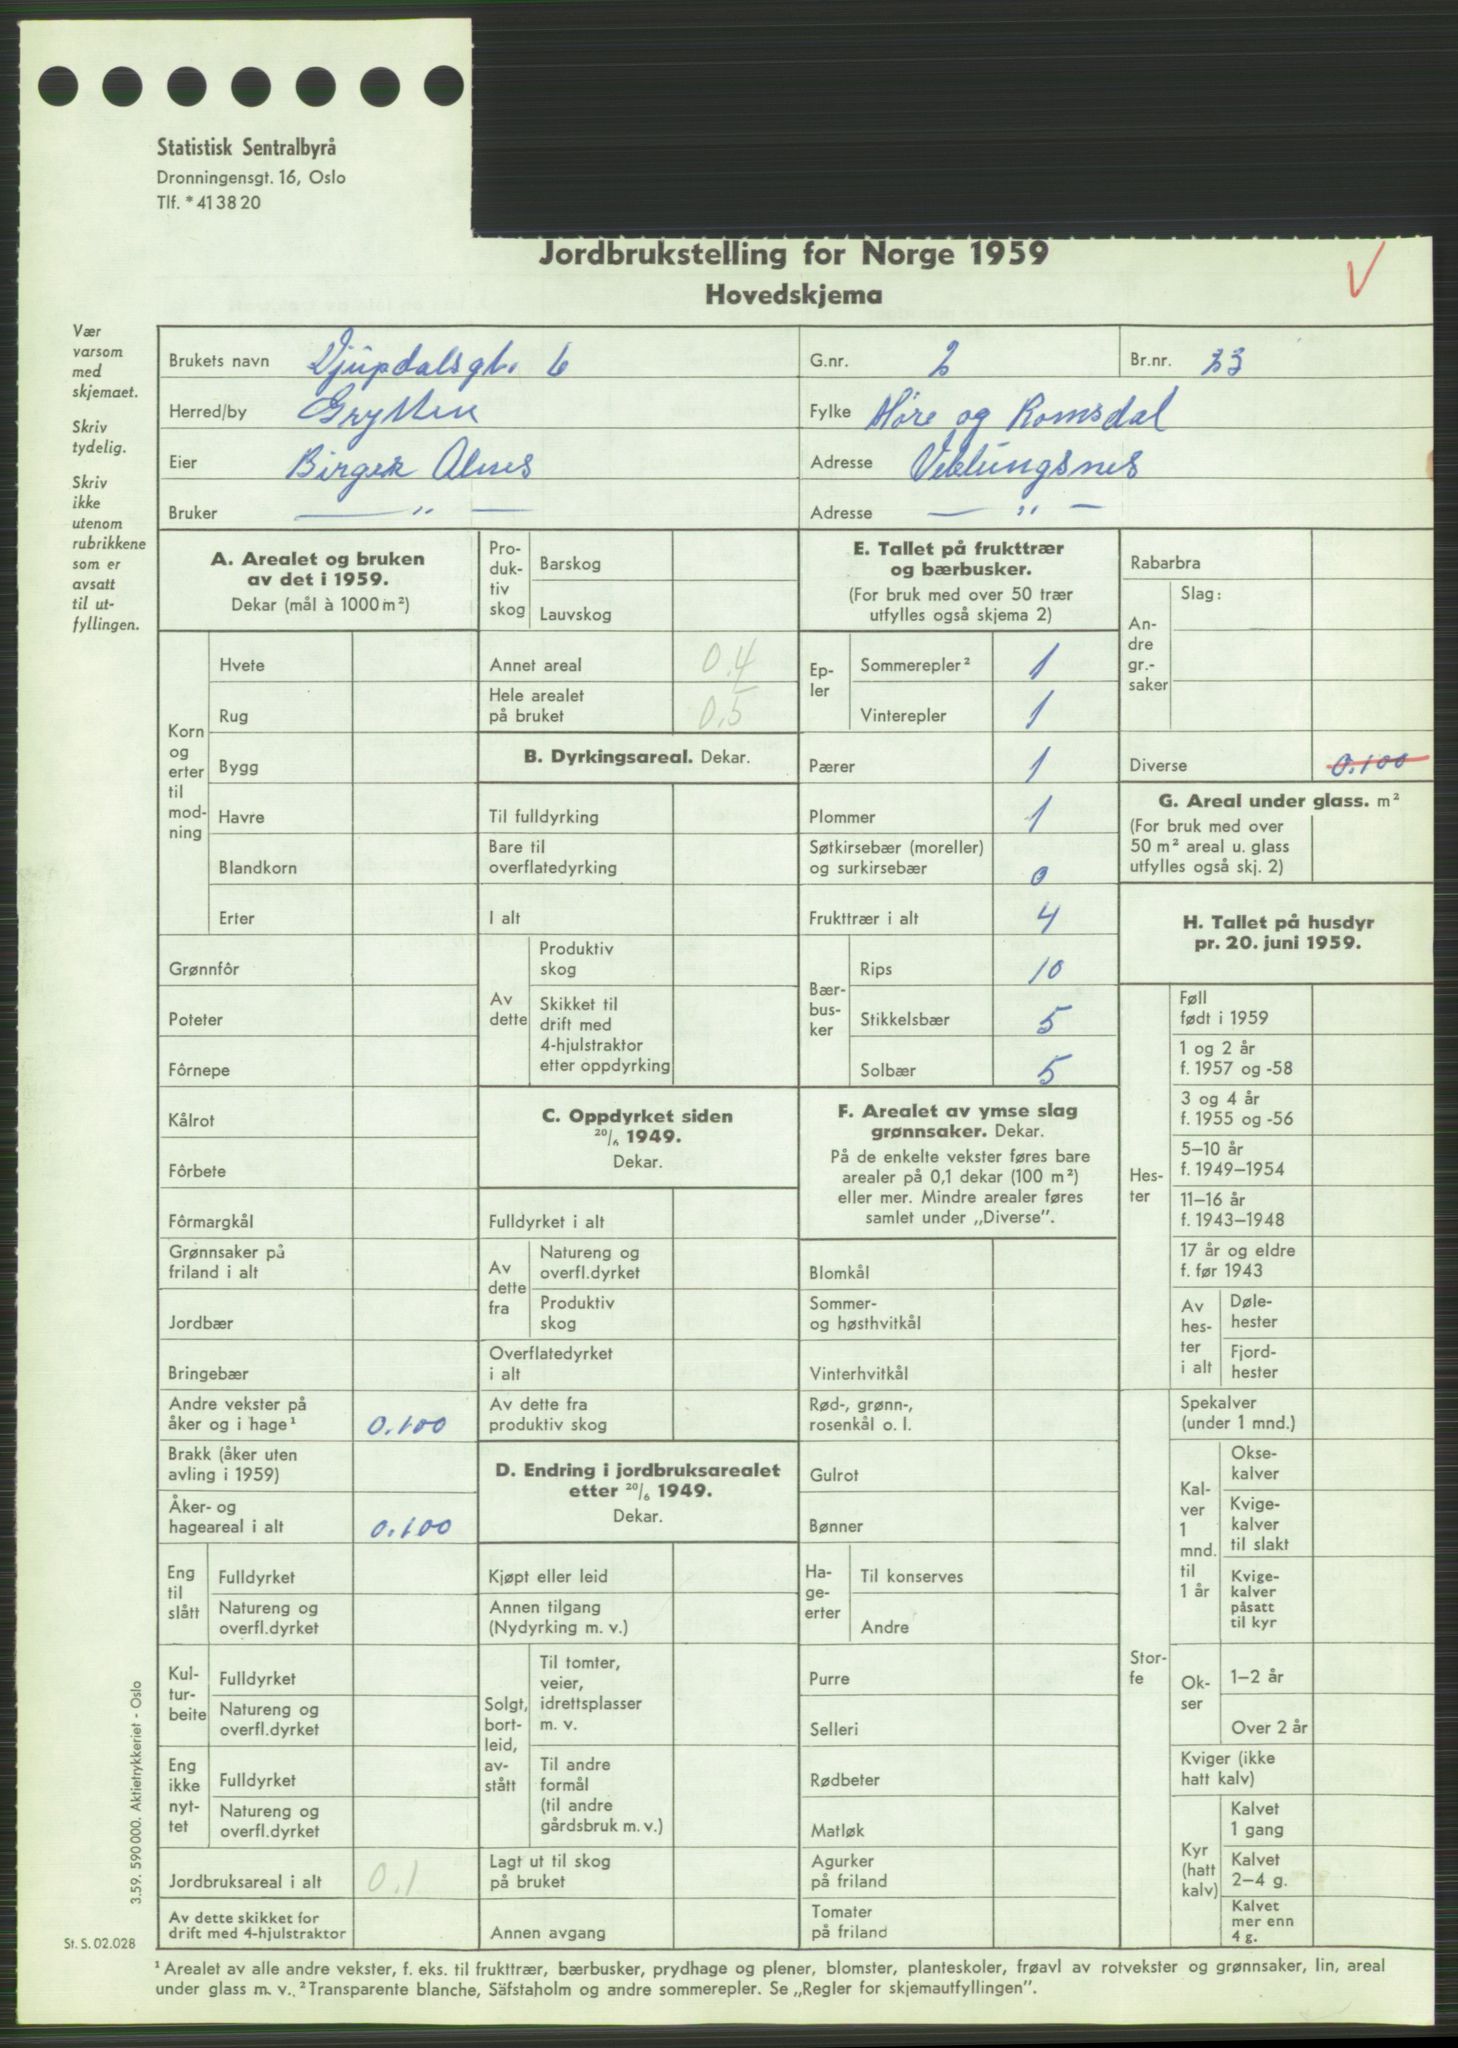 Statistisk Sentralbyrå
Dronningensgt. 16, Oslo
Tlf. * 41 38 20
Jordbrukstelling for Norge 1959
Hovedskjema
V
Vær
varsom
med
skjemaet.
Skriv
tydelig.
Skriv
ikke
utenom
rubrikkene
som er
avsatt
til ut-
fyllingen.
Brukets navn Djupdalsgt. 6 G.nr. 2 Br.nr. 33
Herred/by Grytten Fylke Møre og Romsdal
Eier Birger Alnes Adresse Veblungsnes
Bruker — " — Adresse — " —
A. Arealet og bruken
av det i 1959.
Dekar (mål à 1000 m²)
Korn
og
erter
til
mod-
ning
Hvete
Rug
Bygg
Havre
Blandkorn
Erter
Grønnfôr
Poteter
Fôrnepe
Kålrot
Fôrbete
Fôrmargkål
Grønnsaker på
friland i alt
Jordbær
Bringebær
Andre vekster på
åker og i hage¹ 0.100
Brakk (åker uten
avling i 1959)
Åker- og
hageareal i alt 0.100
Eng
til
slått
Fulldyrket
Natureng og
overfl.dyrket
Kul-
tur-
beite
Fulldyrket
Natureng og
overfl.dyrket
Eng
ikke
nyt-
tet
Fulldyrket
Natureng og
overfl.dyrket
Jordbruksareal i alt 0.1
Av dette skikket for
drift med 4-hjulstraktor
Pro-
duk-
tiv
skog
Barskog
Lauvskog
Annet areal 0.4
Hele arealet
på bruket 0.5
B. Dyrkingsareal. Dekar.
Til fulldyrking
Bare til
overflatedyrking
I alt
Av
dette
Produktiv
skog
Skikket til
drift med
4-hjulstraktor
etter oppdyrking
C. Oppdyrket siden
20/6 1949.
Dekar.
Fulldyrket i alt
Av
dette
fra
Natureng og
overfl.dyrket
Produktiv
skog
Overflatedyrket
i alt
Av dette fra
produktiv skog
D. Endring i jordbruksarealet
etter 20/6 1949.
Dekar.
Kjøpt eller leid
Annen tilgang
(Nydyrking m. v.)
Solgt,
bort-
leid,
av-
stått
Til tomter,
veier,
idrettsplasser
m. v.
Til andre
formål
(til andre
gårdsbruk m. v.)
Lagt ut til skog
på bruket
Annen avgang
E. Tallet på frukttrær
og bærbusker.
(For bruk med over 50 trær
utfylles også skjema 2)
Ep-
ler
Sommerepler² 1
Vinterepler 1
Pærer 1
Plommer 1
Søtkirsebær (moreller)
og surkirsebær 0
Frukttrær i alt 4
Bær-
bus-
ker
Rips 10
Stikkelsbær 5
Solbær 5
F. Arealet av ymse slag
grønnsaker. Dekar.
På de enkelte vekster føres bare
arealer på 0,1 dekar (100 m²)
eller mer. Mindre arealer føres
samlet under „Diverse”.
Blomkål
Sommer-
og høsthvitkål
Vinterhvitkål
Rød-, grønn-,
rosenkål o. l.
Gulrot
Bønner
Ha-
ge-
erter
Til konserves
Andre
Purre
Selleri
Rødbeter
Matløk
Agurker
på friland
Tomater
på friland
Rabarbra
An-
dre
gr.-
saker
Slag:
Diverse 0.100
G. Areal under glass. m²
(For bruk med over
50 m² areal u. glass
utfylles også skj. 2)
H. Tallet på husdyr
pr. 20. juni 1959.
Hes-
ter
Føll
født i 1959
1 og 2 år
f. 1957 og -58
3 og 4 år
f. 1955 og -56
5–10 år
f. 1949–1954
11–16 år
f. 1943–1948
17 år og eldre
f. før 1943
Av
hes-
ter
i alt
Døle-
hester
Fjord-
hester
Stor-
fe
Spekalver
(under 1 mnd.)
Kal-
ver
1
mnd.
til
1 år
Okse-
kalver
Kvige-
kalver
til slakt
Kvige-
kalver
påsatt
til kyr
Ok-
ser
1–2 år
Over 2 år
Kviger (ikke
hatt kalv)
Kyr
(hatt
kalv)
Kalvet
1 gang
Kalvet
2–4 g.
Kalvet
mer enn
4 g.
3.59. 590 000. Aktietrykkeriet - Oslo
St. S. 02.028
¹ Arealet av alle andre vekster, f. eks. til frukttrær, bærbusker, prydhage og plener, blomster, planteskoler, frøavl av rotvekster og grønnsaker, lin, areal
under glass m. v.. ² Transparente blanche, Säfstaholm og andre sommerepler. Se „Regler for skjemautfyllingen”.